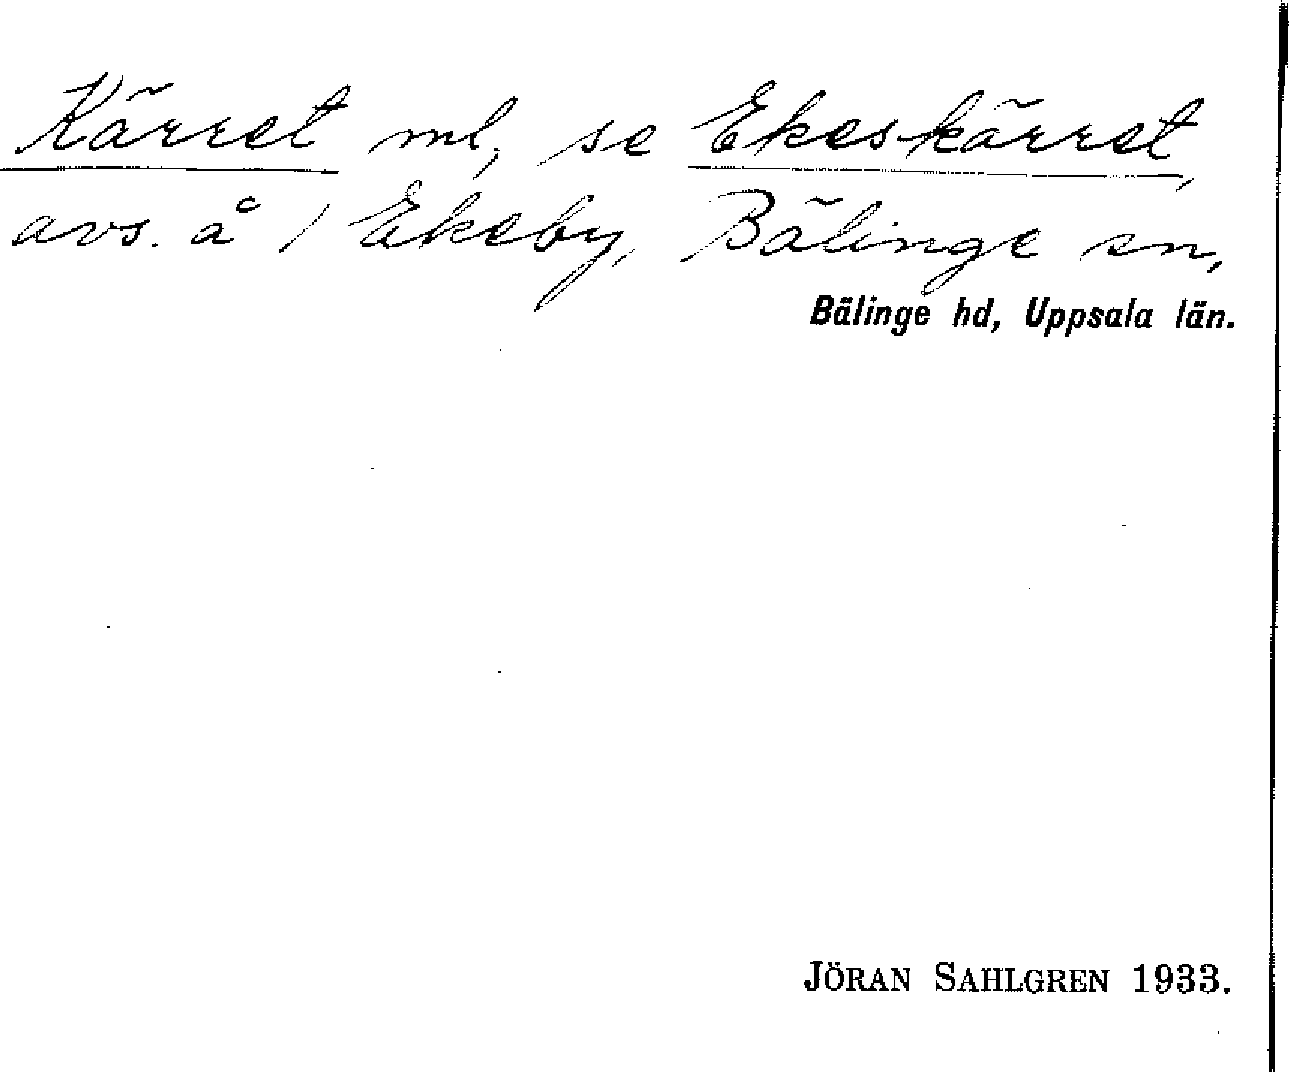 Kärret ml, se Ekeskärret,
avs. å / Ekeby, Bälinge sn,
Bälinge hd, Uppsala län.
JÖRAN SAHLGREN 1933.